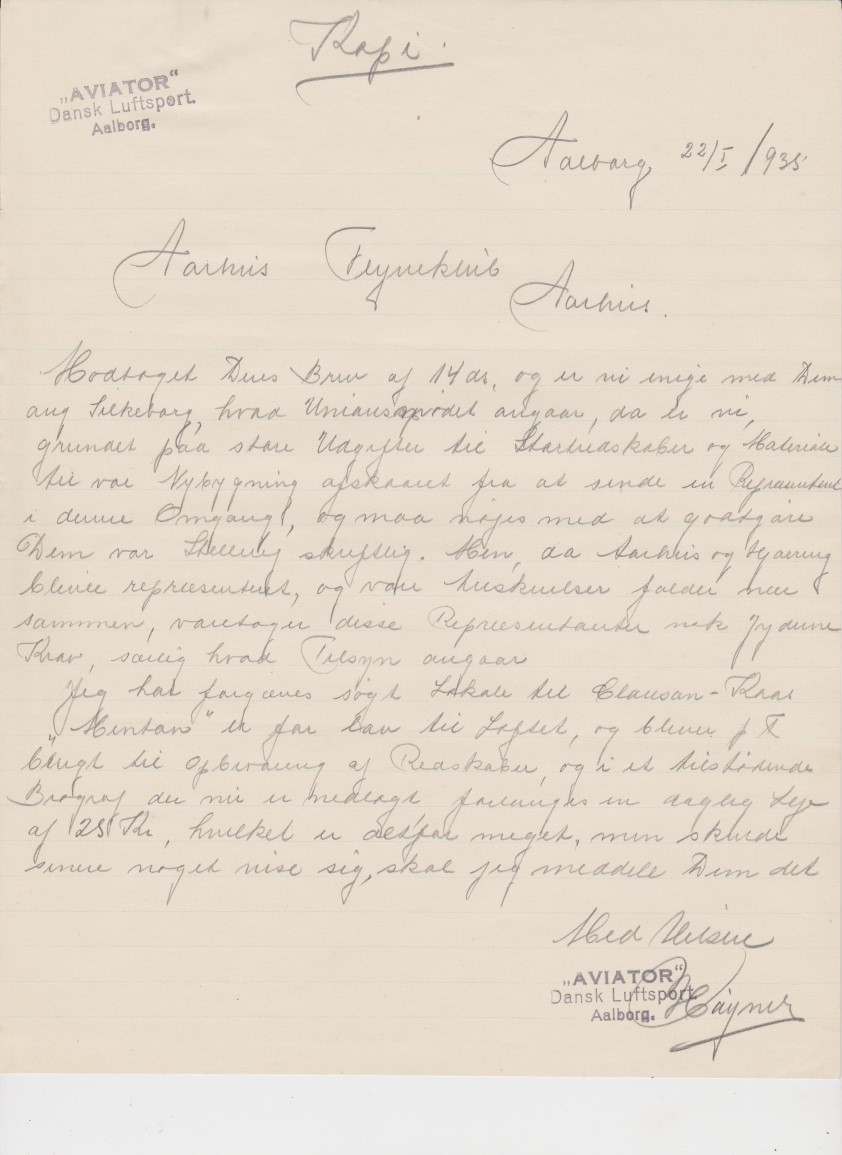 Kopi.
„AVIATOR“
Dansk Luftsport.
Aalborg.
Aalborg, 22/I /935
Aarhus Flyveklub
Aarhus.
Modtaget Deres Brev af 14 ds, og er vi enige med Dem
ang Silkeborg, hvad Unionsmødet angaar, da er vi,
grundet paa store Udgifter til Startredskaber og Materiale
til vor Nybygning afskaaret fra at sende en Repræsentant
i denne Omgang, og maa nøjes med at godtgøre
Dem vor Stilling skriftlig. Men, da Aarhus og Hjørring
bliver repræsenteret, og vore Anskuelser falder nær
sammen, varetager disse Repræsentanter nok Jydernes
Krav, særlig hvad Tilsyn angaar
Jeg har forgæves søgt Lokale til Clausan-Kaas
„Mentor“ er for lav til Loftet, og bliver p T
brugt til Opbevaring af Redskaber, og i et tilstødende
Biograf der nu er nedlagt forlanges en daglig Leje
af 25 Kr, hvilket er altfor meget, men skulde
senere noget vise sig, skal jeg meddele Dem det
Med Hilsen
„AVIATOR“
Dansk Luftsport.
Aalborg.